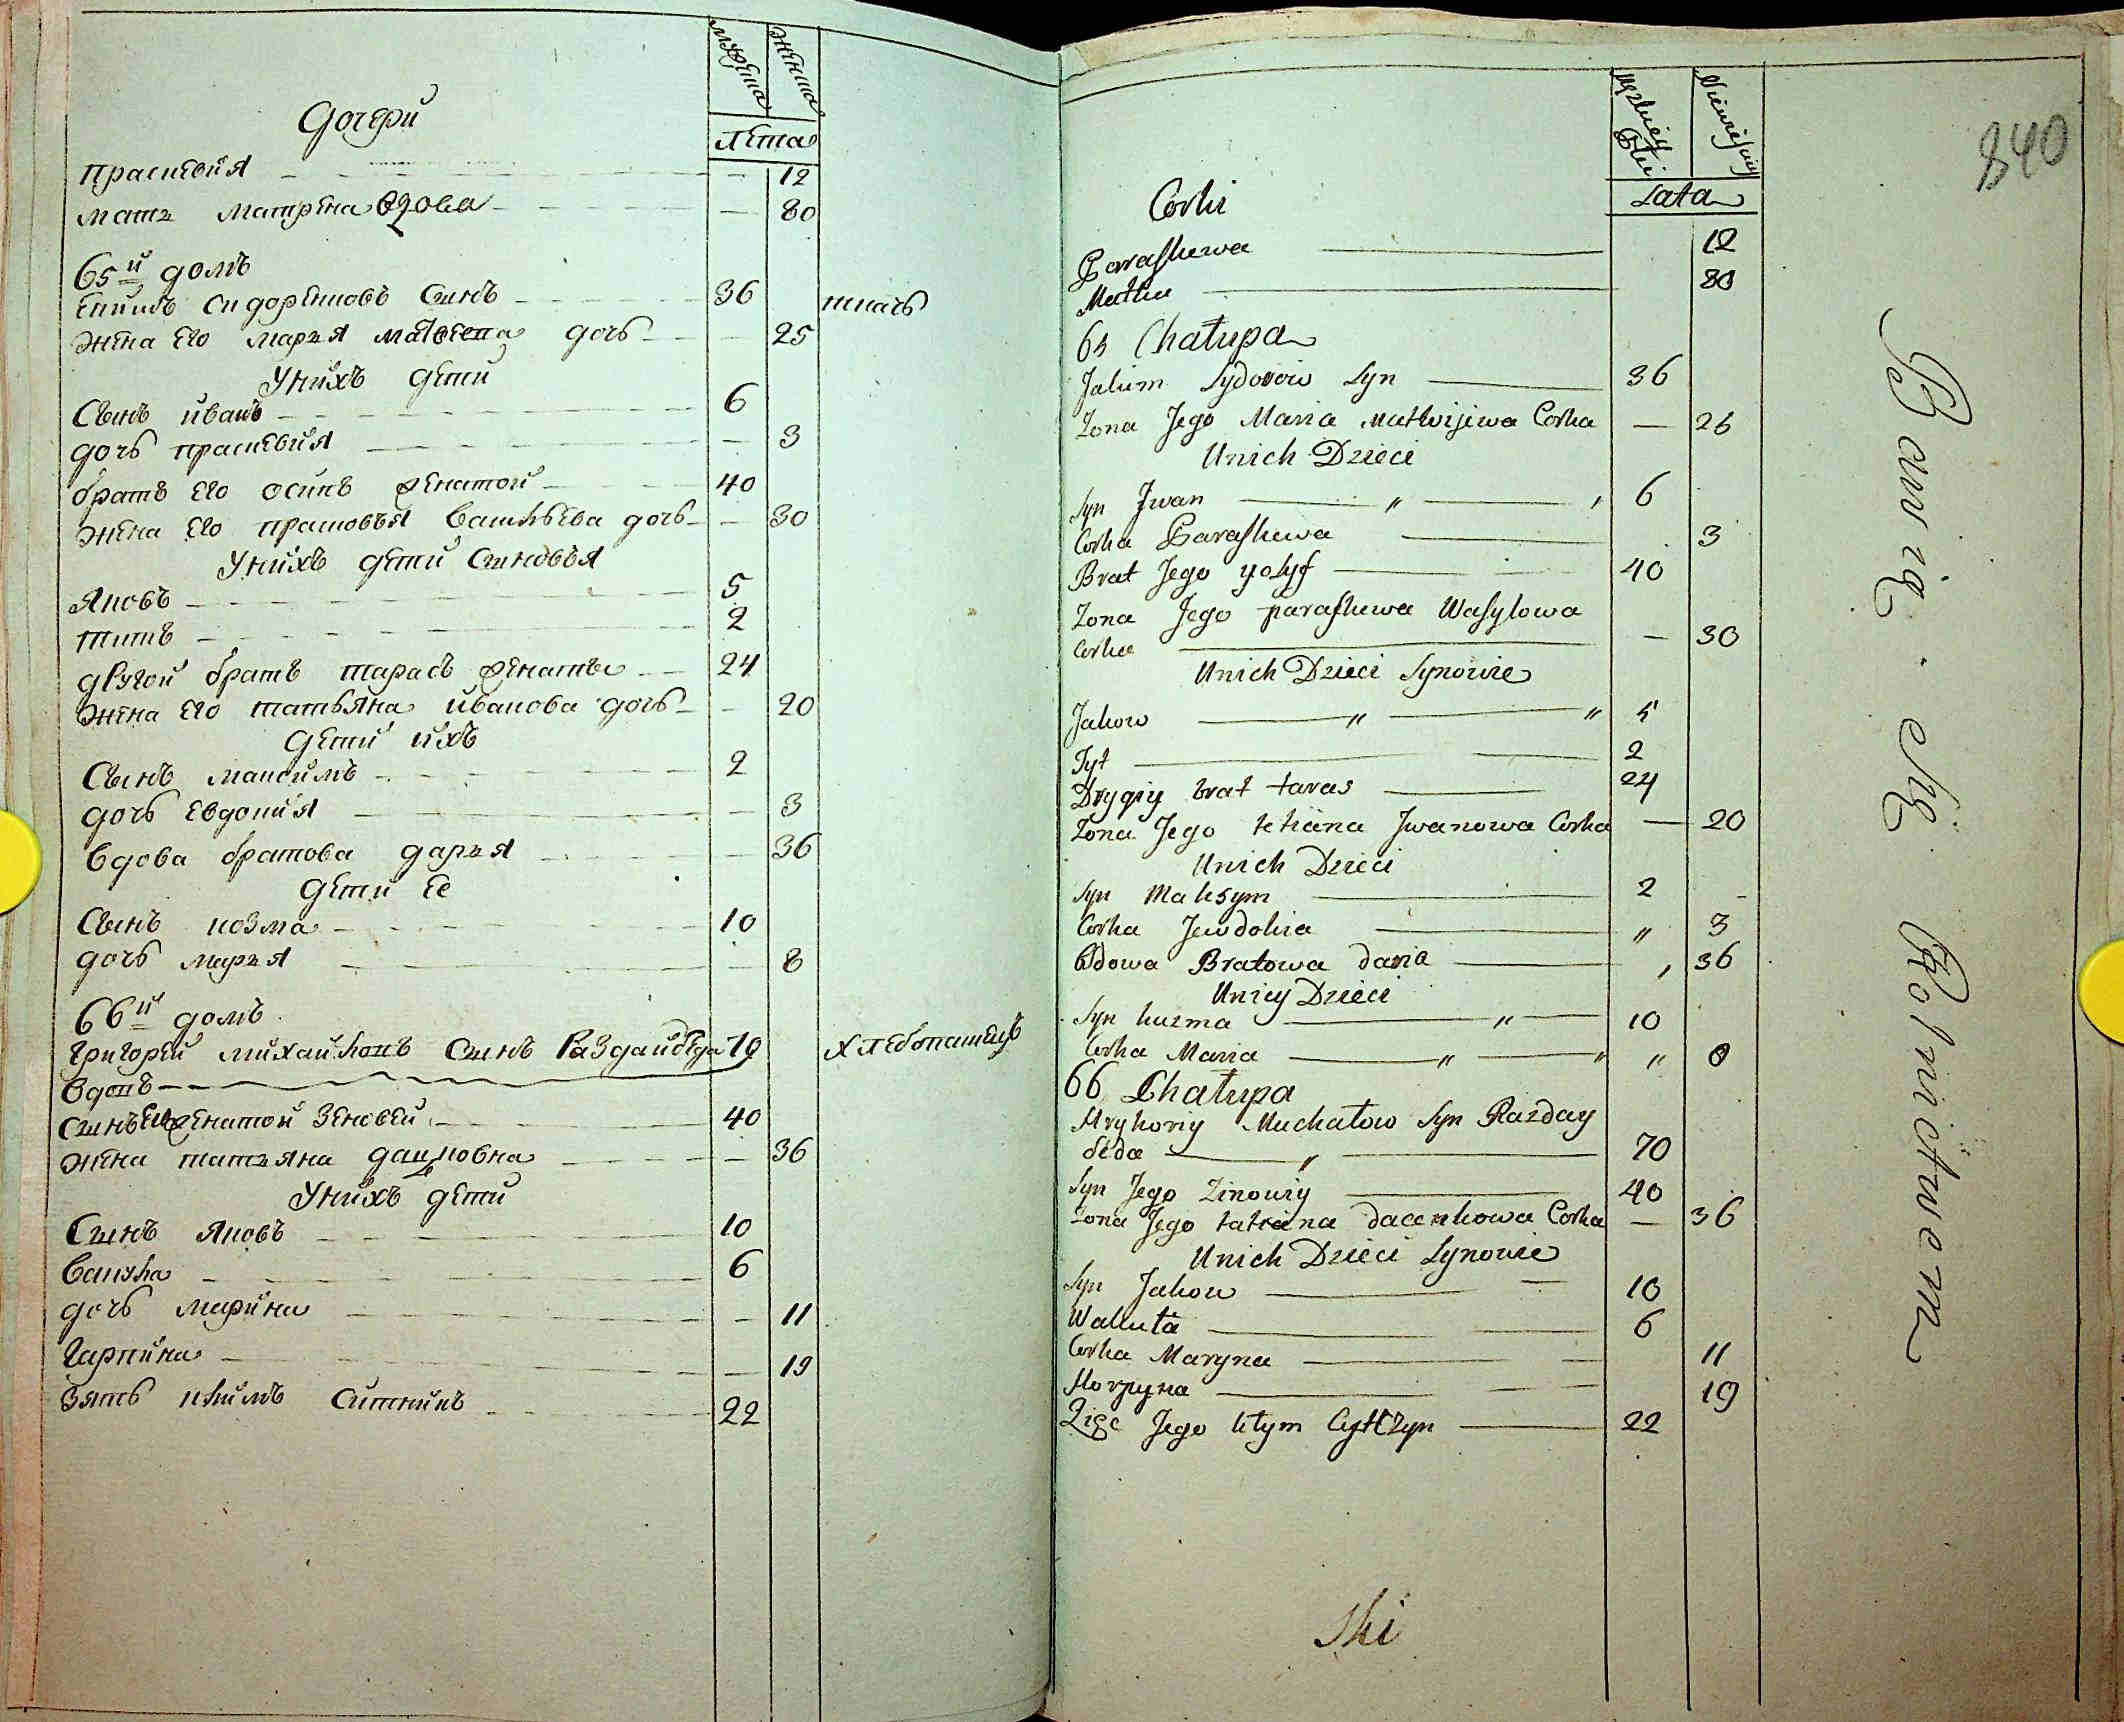 мужеска
женска
Дочери
лета
Праскевия 12
мать матрена вдова 80
65й домъ
екимъ сидоренковъ Сынъ 36 ткачь
жена его марья матвеева дочь 25
У нихъ дети
Сынъ иванъ 6
дочь праскевия 3
братъ его осипъ женатой 40
жена его прасковья васильева дочь 30
У нихъ дети Сыновья
Яковъ 5
титъ 2
другой братъ тарасъ женаты 24
жена его татьяна иванова дочь 20
дети ихъ
Сынъ максимъ 2
дочь евдокия 3
вдова братова дарья 36
дети ее
Сынъ козма 10
дочь марья 8
66й домъ
григорей михайловъ Сынъ Раздайбеда 70 хлебопашецъ
вдовъ
Сынъ его женатой Зеновей 40
жена татьяна дацковна 36
У нихъ дети
Сынъ Яковъ 10
дочь марина 11
гарпина 19
Зять юхимъ Ситникъ 22
840
Męzkiey Płci
Niewieściey
Lata
Corki
Paraskewa 12
Matka 80
65 Chałupa
Jakim Sydorow Syn 36
Zona Jego Maria Matwijewa Corka — 26
Unich Dzieci
Syn Jwan " , 6
Corka Paraskewa 3
Brat Jego yosyf 40
Zona Jego paraskewa Wasylowa
Corka — 30
Unich Dzieci Synowie
Jakow " " 5
Tyt 2
Drygiy brat taras 24
Zona Jego tetiana Jwanowa Corka — 20
Unich Dzieci
Syn Maksym 2
Corka Jewdokia " 3
Wdowa Bratowa daria , 36
Uniey Dzieci
Syn kuzma " 10
Corka Maria " " " 8
66 Chałupa
Hryhoriy Muchałow Syn Razday
beda " 70
Syn Jego Zinowiy 40
Zona Jego tatiana dacenkowa Corka — 36
Unich Dzieci Synowie
Syn Jakow 10
Wakuła 6
Corka Maryna 11
Horpyna 19
Zięc Jego 22
Bawią się Rolnictwem
ski